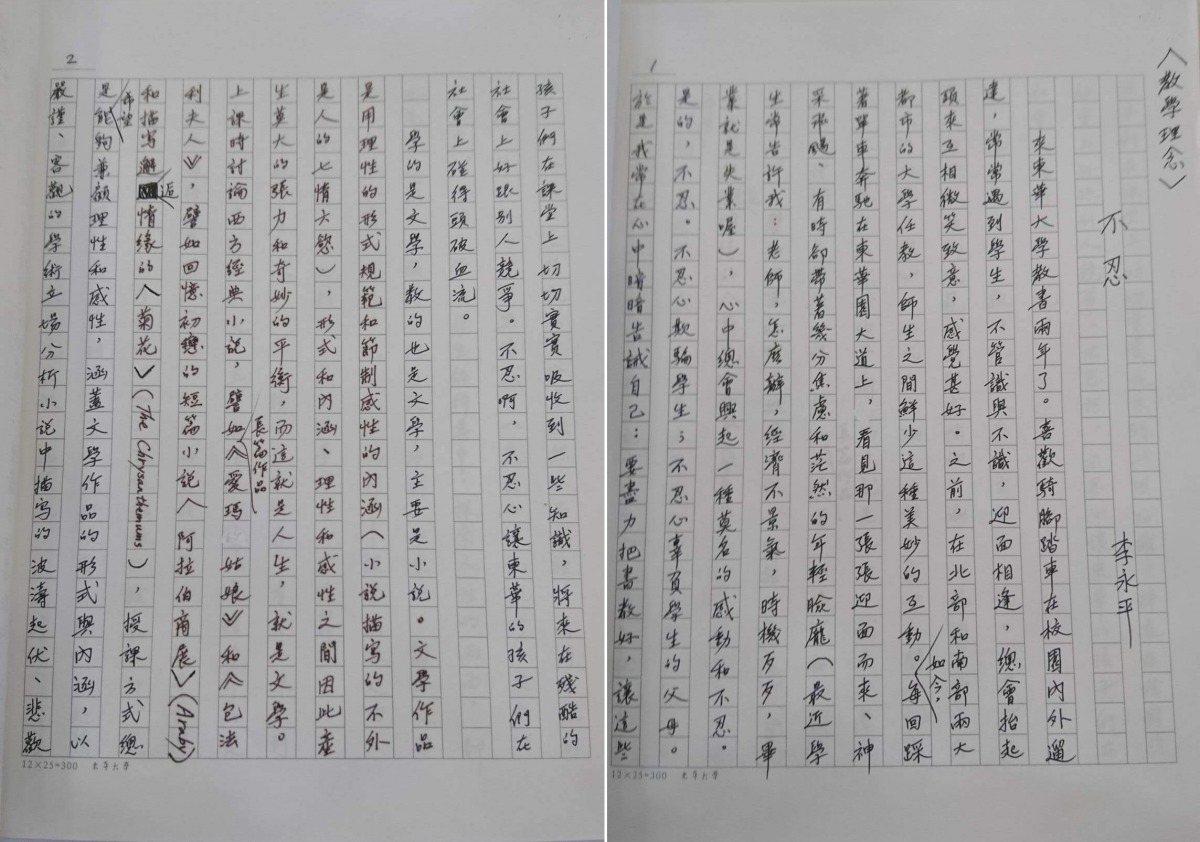 1
〈教學理念〉
不忍
李永平
來東華大學教書兩年了。喜歡騎腳踏車在校園內外遛
達，常常遇到學生，不管識與不識，迎面相逢，總會抬起
頭來互相微笑致意，感覺甚好。之前，在北部和南部兩大
都市的大學任教，師生之間鮮少這種美妙的互動。如今，每回踩
著單車奔馳在東華園大道上，看見那一張張迎面而來、神
采飛颺、有時卻帶著幾分焦慮和茫然的年輕臉龐（最近學
生常告訴我：老師，怎麼辦，經濟不景氣，時機歹歹，畢
業就是失業喔），心中總會興起一種莫名的感動和不忍。
是的，不忍。不忍心欺騙學生；不忍心辜負學生的父母。
於是我常在心中暗暗告誡自己：要盡力把書教好，讓這些
12×25=300 東華大學
2
孩子們在課堂上切切實實吸收到一些知識，將來在殘酷的
社會上好跟別人競爭。不忍啊，不忍心讓東華的孩子們在
社會上碰得頭破血流。
學的是文學，教的也是文學，主要是小說。文學作品
是用理性的形式規範和節制感性的內涵（小說描寫的不外
是人的七情六慾），形式和內涵、理性和感性之間因此產
生莫大的張力和奇妙的平衡，而這就是人生，就是文學。
上課時討論西方經典小說，譬如長篇作品《愛瑪姑娘》和《包法
利夫人》，譬如回憶初戀的短篇小說〈阿拉伯商展〉(Araby)
和描寫邂逅情緣的〈菊花〉(The Chrysanthemums)，授課方式總
是希望能夠兼顧理性和感性，涵蓋文學作品的形式與內涵，以
嚴謹、客觀的學術立場分析小說中描寫的波濤起伏、悲歡
12×25=300 東華大學